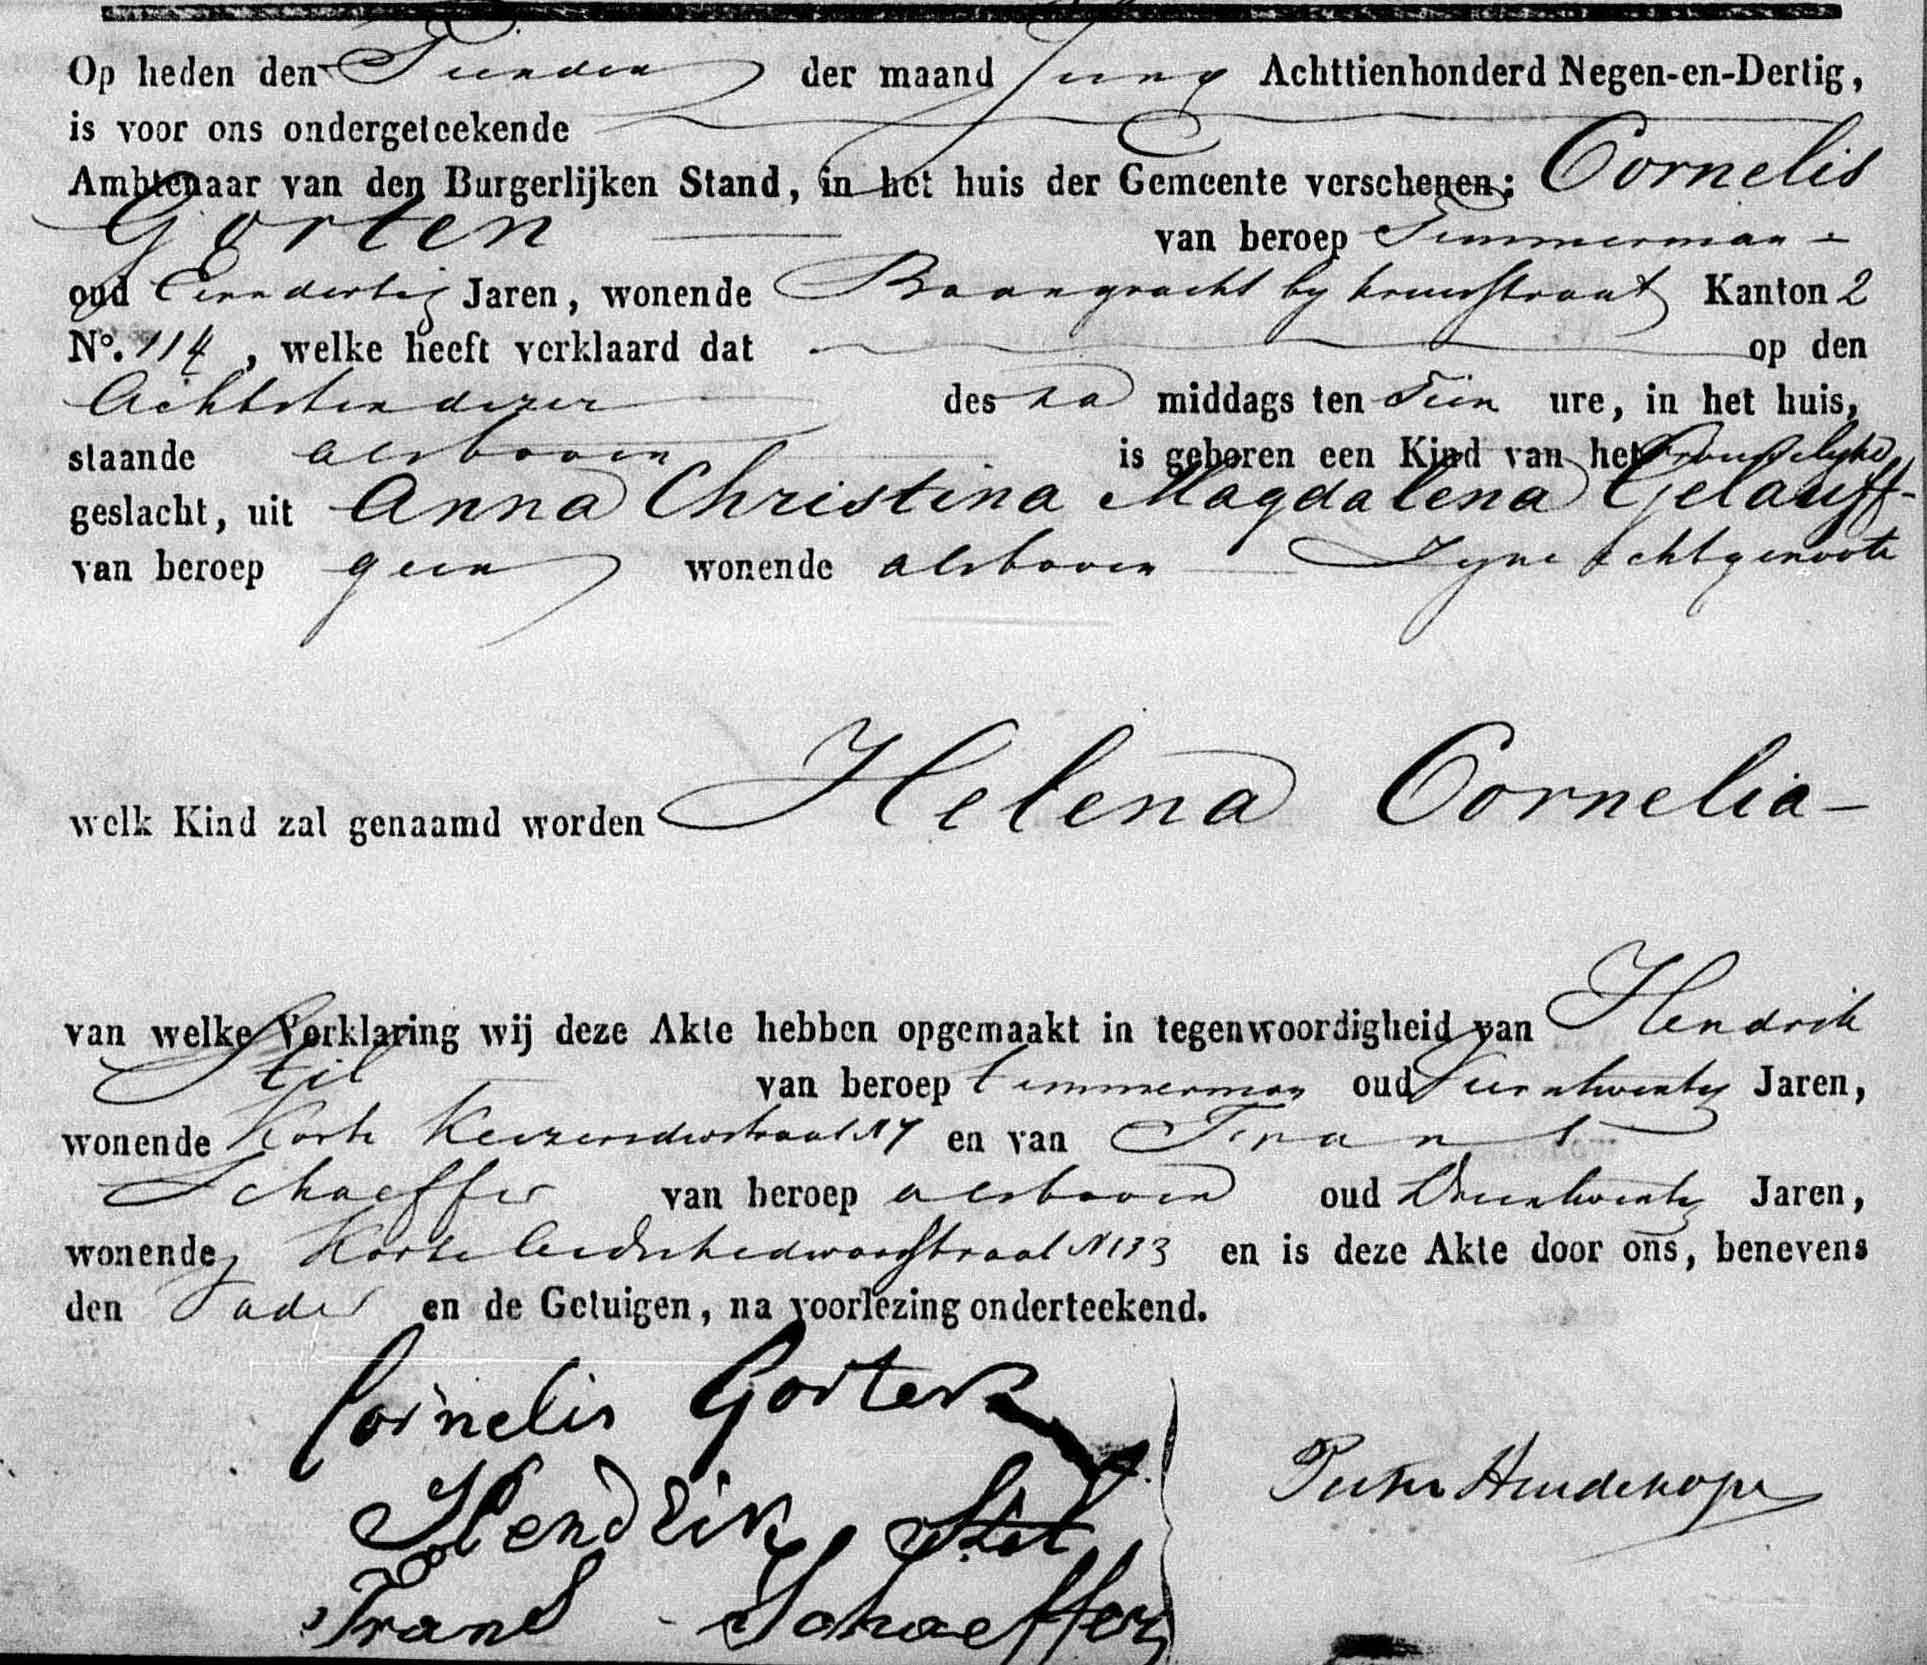 Op heden den Tienden der maand Juny Achttienhonderd Negen-en-Dertig,
is voor ons ondergeteekende
Ambtenaar van den Burgerlijken Stand, in het huis der Gemeente verschenen: Cornelis
Gorter van beroep Timmerman
oud Eenendertig Jaren, wonende Baangracht by kruisstraat Kanton 2
No. 114, welke heeft verklaard dat op den
Achtsten dezer des na middags ten Tien ure, in het huis,
staande alsboven is geboren een Kind van het Vrouwelyke
geslacht, uit Anna Christina Magdalena Gelauff
van beroep geen wonende alsboven Zyne Echtgenoote
welk Kind zal genaamd worden Helena Cornelia
van welke Verklaring wij deze Akte hebben opgemaakt in tegenwoordigheid van Hendrik
Stil van beroep timmerman oud Jaren,
wonende Korte Keizersdwstraat N 7 en van Frans
Schaeffer van beroep alsboven oud Drieentwintig Jaren,
wonende Korte Leidschedwarsstraat N 133 en is deze Akte door ons, benevens
den Vader en de Getuigen, na voorlezing onderteekend.
Cornelis Gorter
Hendrik
Pieter Huidekoper
Frans Schaeffer